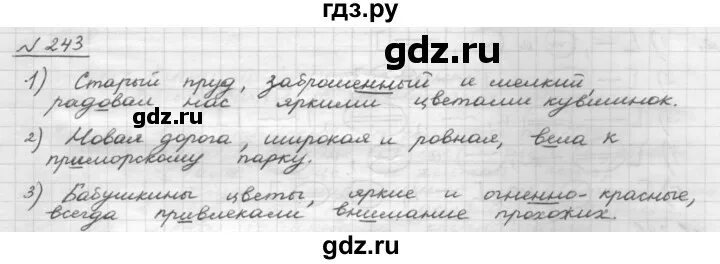 гдз.ру
№ 243
gdz.ru
1) Старый пруд, заброшенный и мелкий,
радовал нас яркими цветами кувшинок.
gdz.ru
2) Новая дорога, широкая и ровная, вела к
приморскому парку.
3) Бабушкины цветы, яркие и огненно-красные,
всегда привлекали внимание прохожих.
gdz.ru